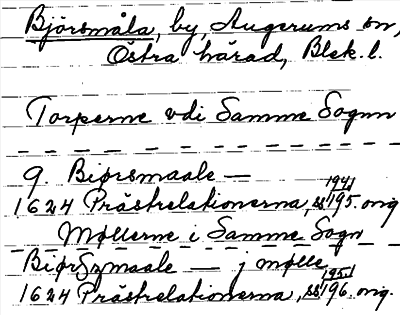 Björsmåla, by, Augerums sn,
Östra härad, Blek. l.
Torperne vdi Samme Sognn
9. Biørsmaale —
1941
1624 Prästrelationerna, ss 195. orig
Møllerne i Samme Sogn
BiørSzmaale — j mølle
1951
1624 Prästrelationerna, ss 196. orig.